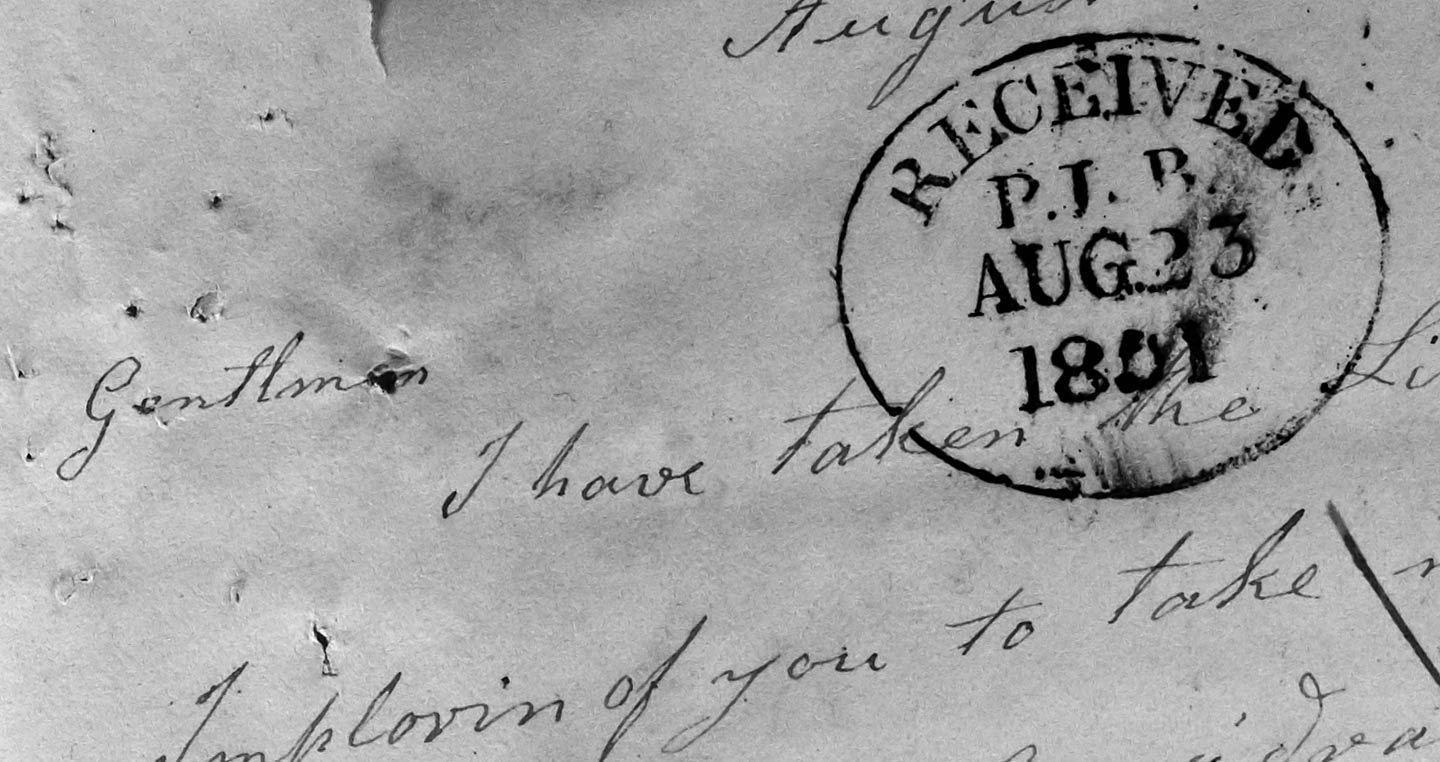 August
RECEIVED
P.L.B.
AUG.23
1851
Gentlmen
I have taken the Li
Implorin of you to take